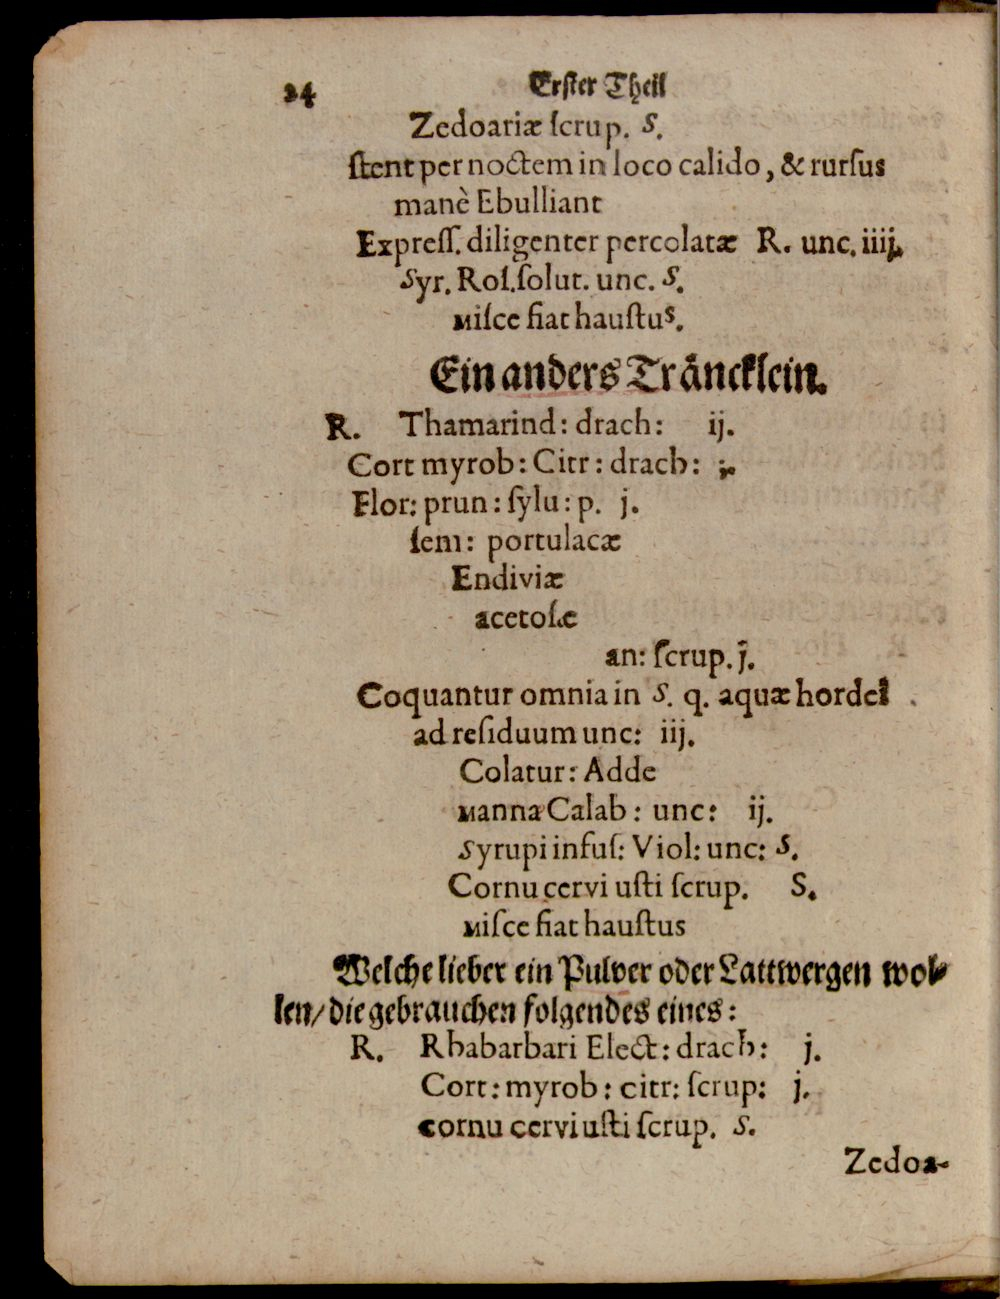 24 Erster Theil
Zedoariæ ſcrup. S.
ſtent per noctem in loco calido, & rurſus
manè Ebulliant
Expreſſ. diligenter percolatæ R. unc. iiij.
Syr. Roſ. ſolut. unc. S.
Miſce fiat hauſtus.
Ein anders Träncklein.
R. Thamarind: drach: ij.
Cort myrob: Citr: drach: j.
Flor: prun: ſylu: p. j.
ſem: portulacæ
Endiviæ
acetoſe
an: ſcrup. j.
Coquantur omnia in S. q. aquæ hordei
ad reſiduum unc: iij.
Colatur: Adde
Manna Calab: unc: ij.
Syrupi infuſ: Viol: unc: S.
Cornu cervi uſti ſcrup. S.
Miſce fiat hauſtus
Welche lieber ein Pulver oder Lattwergen wol-
len/ die gebrauchen folgendes eines:
R. Rhabarbari Elect: drach: j.
Cort: myrob: citr: ſcrup: j.
cornu cervi uſti ſcrup. S.
Zedoa-